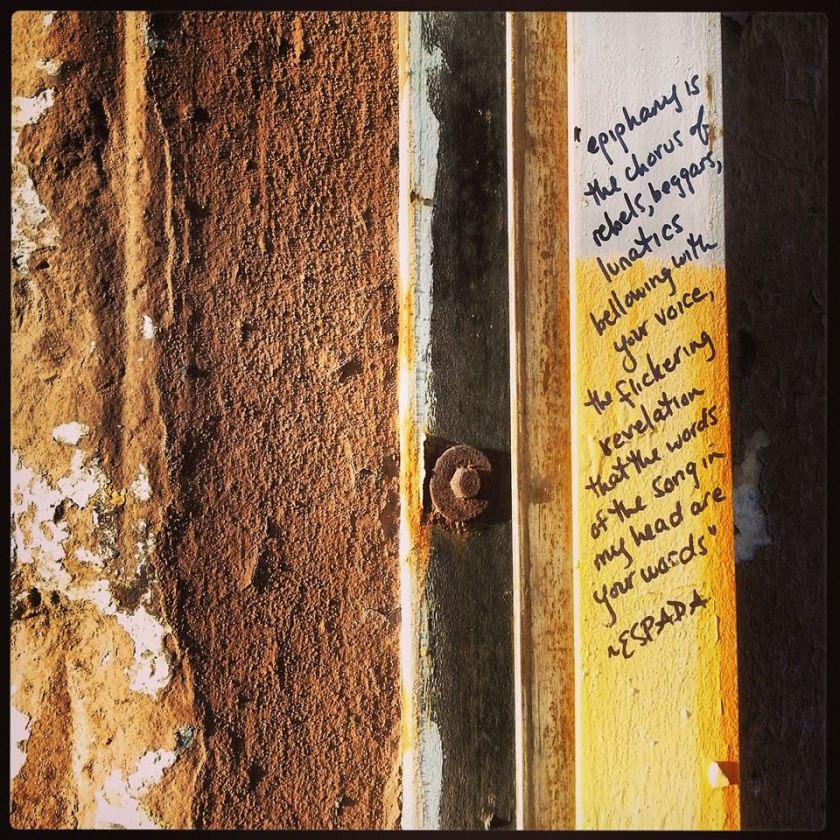 "epiphany is
the chorus of
rebels, beggars,
lunatics
bellowing with
your voice,
the flickering
revelation
that the words
of the song in
my head are
your words"
~ESPADA